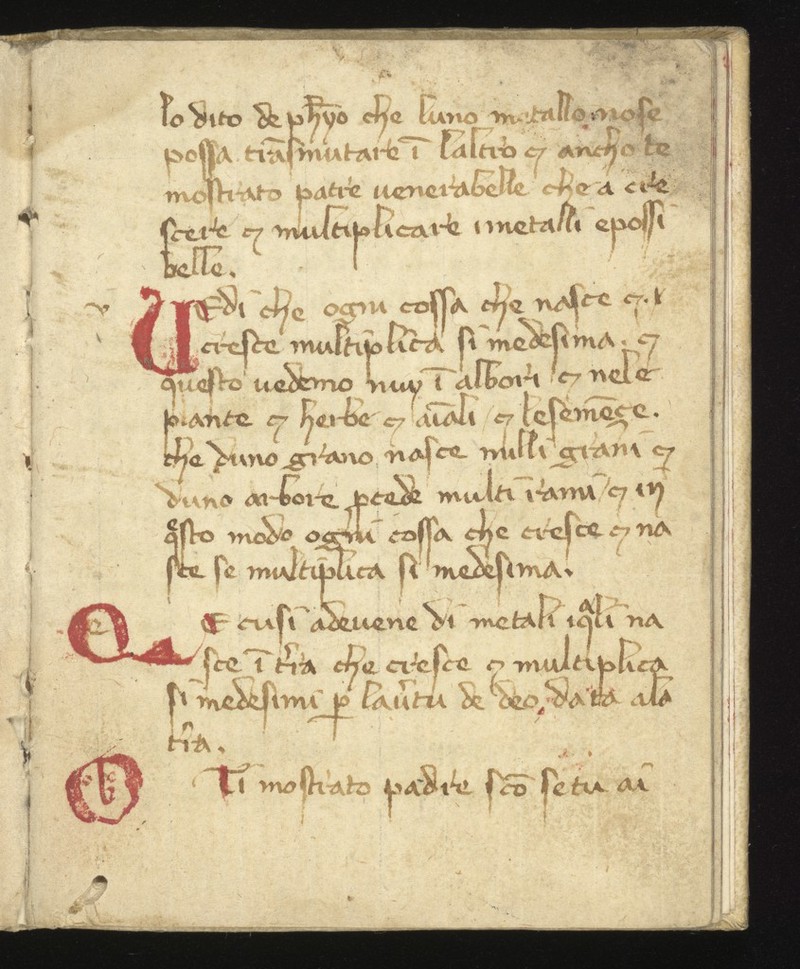 lo dito de ph̄yo che luno metallo nose
possa trāsmutare ī laltro ⁊ ancho te
mostrato patre venerabelle che a cre
scere ⁊ multiplicare i metalli epossi
belle.
v VEdi che ogni cossa che nasce ⁊.
cresce multiplica si medesima. ⁊
questo vedemo nuy ī albori ⁊ nele
piante ⁊ herbe ⁊ aīali ⁊ le semēce.
che duno grano nasce milli grani ⁊
duno arbore ꝓcede multi irami ⁊ in
q̄sto modo ogni cossa che cresce ⁊ na
sce se multiplica si medesima.
e E cusi advene di metali iq̄li na
sce ī tr̄a che cresce ⁊ multiplica
si medesimi ꝑ lav̄tu de deo data ala
tr̄a.
t Ti mostrato padre sc̄o setu ai